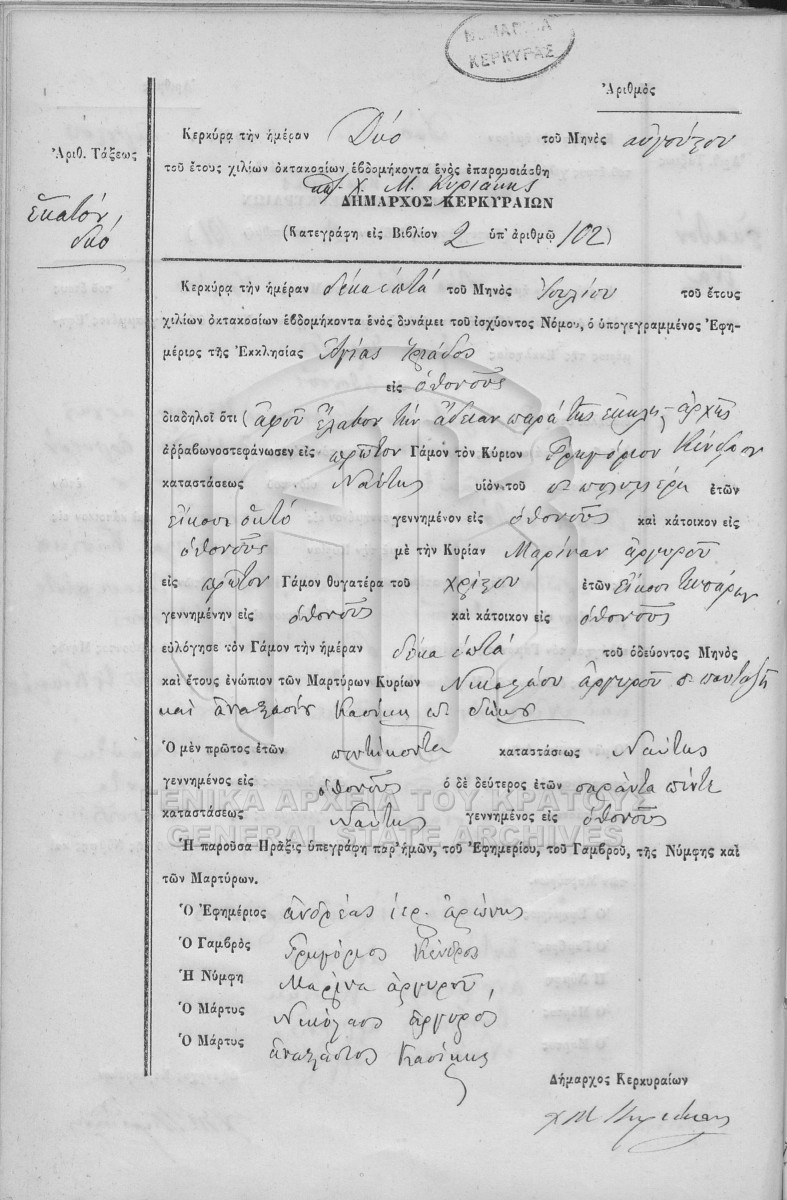 ΝΟΜΑΡΧΙΑ
ΚΕΡΚΥΡΑΣ
Ἀριθμὸς
Κερκύρα τὴν ἡμέραν Δύο τοῦ Μηνὸς αὐγούστου
Ἀριθ. Τάξεως
τοῦ ἔτους χιλίων ὀκτακοσίων ἑβδομήκοντα ἑνὸς ἐπαρουσιάσθη
Χ. Μ. Κυριάκης
ΔΗΜΑΡΧΟΣ ΚΕΡΚΥΡΑΙΩΝ
ἑκατόν
δύο
(Κατεγράφη εἰς Βιβλίον 2 ὑπ' ἀριθμῷ 102)
Κερκύρᾳ τὴν ἡμέραν δέκα ἑπτά τοῦ Μηνὸς Ἰουλίου τοῦ ἔτους
χιλίων ὀκτακοσίων ἑβδομήκοντα ἑνὸς δυνάμει τοῦ ἰσχύοντος Νόμου, ὁ ὑπογεγραμμένος Ἐφη-
μέριος τῆς Ἐκκλησίας Ἁγίας Τριάδος
εἰς ὀθονοῦς
διαδηλοῖ ὅτι (ἀφοῦ ἔλαβον τὴν ἄδειαν παρὰ τῆς ἐκκλησ. ἀρχῆς
ἀῤῥαβωνοστεφάνωσεν εἰς πρῶτον Γάμον τὸν Κύριον Γρηγόριον Κένδρον
καταστάσεως Ναύτης υἱὸν τοῦ ἐτῶν
εἴκοσι ὀκτό γεννημένον εἰς ὀθονοῦς καὶ κάτοικον εἰς
ὀθονοῦς μὲ τὴν Κυρίαν Μαρίναν ἀργυροῦ
εἰς πρῶτον Γάμον θυγατέρα τοῦ χρίστου ἐτῶν εἴκοσι τεσσάρων
γεννημένην εἰς ὀθονοῦς καὶ κάτοικον εἰς ὀθονοῦς
εὐλόγησε τὸν Γάμον τὴν ἡμέραν δέκα ἑπτά τοῦ ὁδεύοντος Μηνὸς
καὶ ἔτους ἐνώπιον τῶν Μαρτύρων Κυρίων Νικολάου ἀργυροῦ
καὶ ἀναστασίου Κασίμης
Ὁ μὲν πρῶτος ἐτῶν πεντίκοντα καταστάσεως Ναύτης
γεννημένος εἰς ὀθονοῦς ὁ δὲ δεύτερος ἐτῶν σαράντα πέντε
καταστάσεως Ναύτης γεννημένος εἰς ὀθονοῦς
ΓΕΝΙΚΑ ΑΡΧΕΙΑ ΤΟΥ ΚΡΑΤΟΥΣ
GENERAL STATE ARCHIVES
Ἡ παροῦσα Πρᾶξις ὑπεγράφη παρ' ἡμῶν, τοῦ Ἐφημερίου, τοῦ Γαμβροῦ, τῆς Νύμφης καὶ
τῶν Μαρτύρων.
Ὁ Ἐφημέριος ἀνδρέας ἱερ. ἀρώνης
Ὁ Γαμβρὸς Γρηγόριος Κένδρος
Ἡ Νύμφη Μαρίνα ἀργυροῦ
Ὁ Μάρτυς Νικόλαος ἀργυρος
Ὁ Μάρτυς ἀναστάσιος Κασίμης
Δήμαρχος Κερκυραίων
Χ Μ Κυριάκης